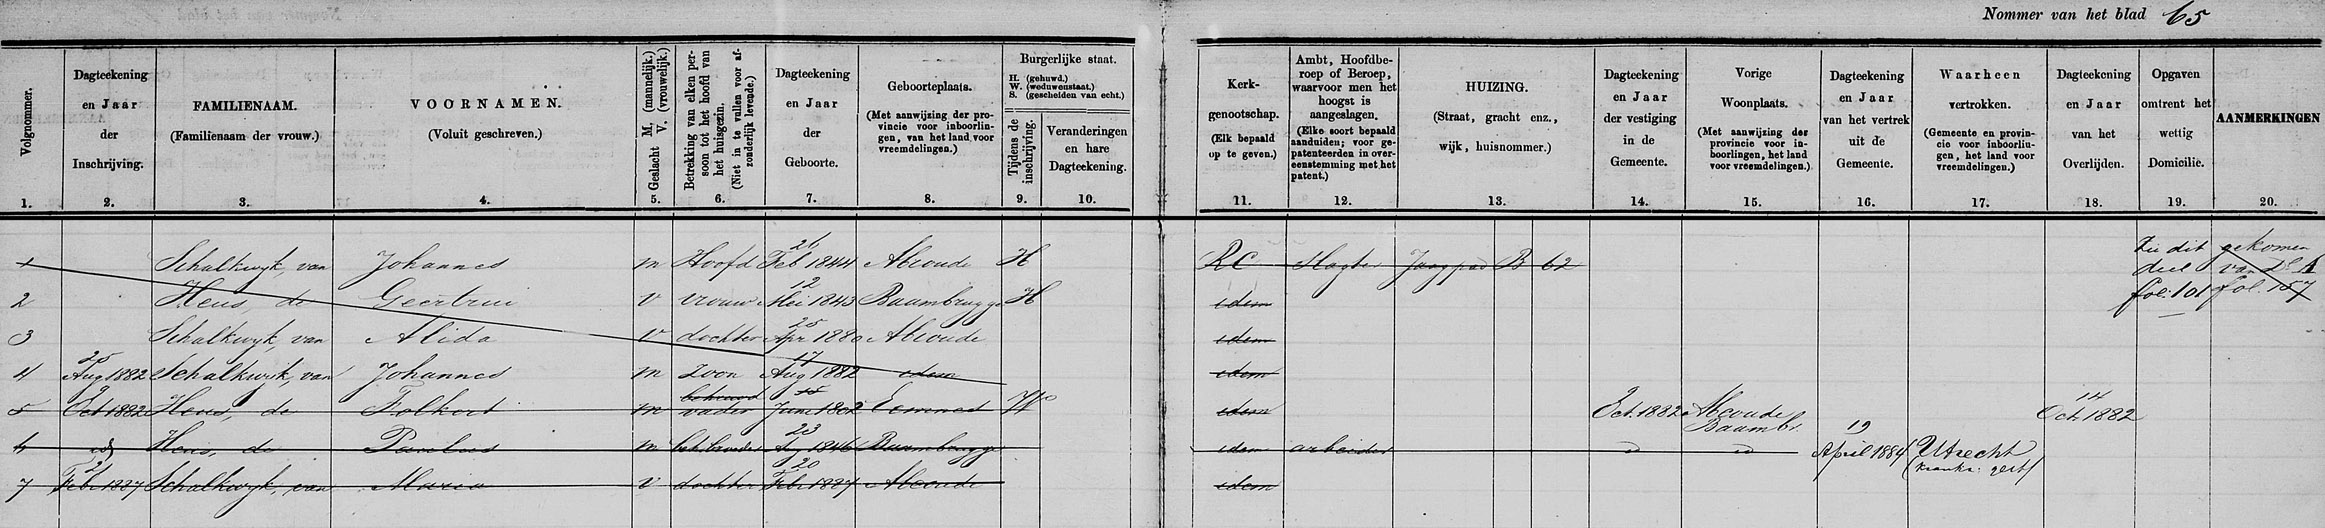 Nommer van het blad 65
Volgnommer.
1.
Dagteekening
en Jaar
der
Inschrijving.
2.
FAMILIENAAM.
(Familienaam der vrouw.)
3.
VOORNAMEN.
(Voluit geschreven.)
4.
Geslacht M. (mannelijk.)
V. (vrouwelijk.)
5.
Betrekking van elken per-
soon tot het hoofd van
het huisgezin.
(Niet in te vullen voor af-
zonderlijk levende.)
6.
Dagteekening
en Jaar
der
Geboorte.
7.
Geboorteplaats.
(Met aanwijzing der pro-
vincie voor inboorlin-
gen, van het land voor
vreemdelingen.)
8.
Burgerlijke staat.
H. (gehuwd.)
W. (weduwenstaat.)
S. (gescheiden van echt.)
Tijdens de
inschrijving.
9.
Veranderingen
en hare
Dagteekening.
10.
Kerk-
genootschap.
(Elk bepaald
op te geven.)
11.
Ambt, Hoofdbe-
roep of Beroep,
waarvoor men het
hoogst is
aangeslagen.
(Elke soort bepaald
aanduiden; voor ge-
patenteerden in over-
eenstemming met het
patent.)
12.
HUIZING.
(Straat, gracht enz.,
wijk, huisnommer.)
13.
Dagteekening
en Jaar
der vestiging
in de
Gemeente.
14.
Vorige
Woonplaats.
(Met aanwijzing der
provincie voor in-
boorlingen, het land
voor vreemdelingen.)
15.
Dagteekening
en Jaar
van het vertrek
uit de
Gemeente.
16.
Waarheen
vertrokken.
(Gemeente en provin-
cie voor inboorlin-
gen, het land voor
vreemdelingen.)
17.
Dagteekening
en Jaar
van het
Overlijden.
18.
Opgaven
omtrent het
wettig
Domicilie.
19.
AANMERKINGEN
20.
1 Schalkwyk, van Johannes m Hoofd 26 Feb 1844 Abcoude H RC Slagter Jaagpad B 62
Zie dit
deel
fol. 101
gekomen
van Dl A
fol. 157
2 Heus, de Geertrui v vrouw 12 Mei 1843 Baambrugge H idem
3 Schalkwyk, van Alida v dochter 25 Apr 1880 Abcoude idem
4 25 Aug 1882 Schalkwijk, van Johannes m Zoon 17 Aug 1882 idem idem
5 Oct 1882 Heus, de Folkert m behuwd vader Juni 1802 Eemnes W idem Oct. 1882 Abcoude Baambr. 14 Oct. 1882
id Heus, de m beh. broeder 23 Aug 1846 Baambrugge idem arbeider 19 April 1884 Utrecht
(krankz. gest)
7 21 Feb 1887 Schalkwyk, van Maria v dochter 20 Febr 1887 Abcoude idem